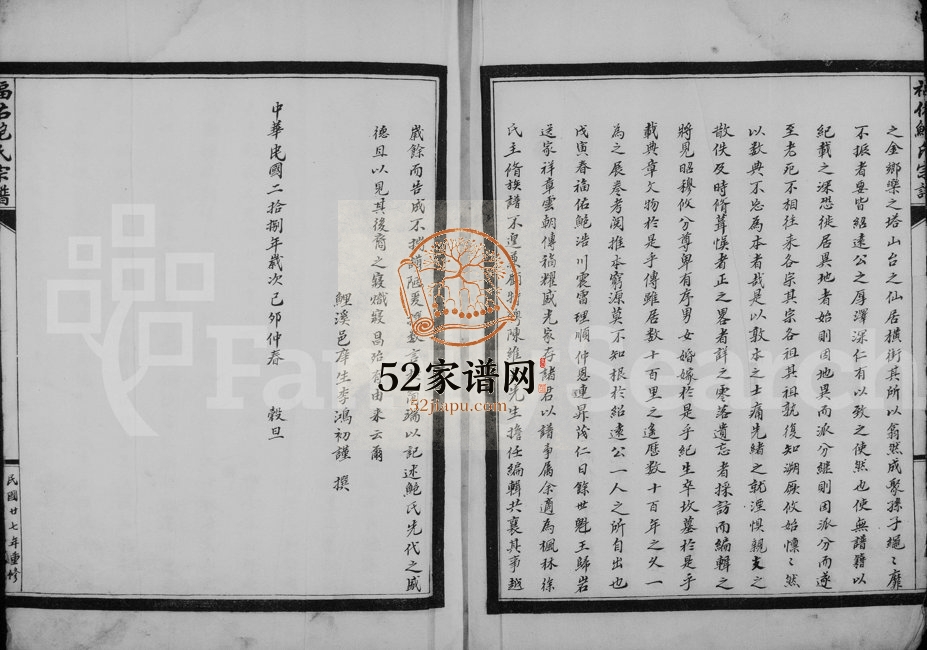 福佑鮑氏宗譜
之金鄉樂之塔山台之仙居橫街其所以翕然成聚孫子繩〻靡
不振者要皆紹遠公之厚澤深仁有以致之使然也使無譜籍以
紀載之深恐徙居異地者始則因地異而派分繼則因派分而遂
至老死不相往來各宗其宗各祖其祖孰復知溯厥攸始懍〻然
以數典不忘為本者哉是以敦本之士痛先緒之就湮惧親支之
散佚及時脩葺悞者正之畧者詳之零落遺忘者採訪而編輯之
將見昭穆攸分尊卑有序男女婚嫁於是乎紀生卒坟墓於是乎
載典章文物於是乎傳雖居数十百里之遙歷数十百年之久一
為之展奉考閱推本窮源莫不知根於紹遠公一人之所自出也
戊寅春福佑鮑浩川震雷理順仲恩連昇茂仁日餘世魁王歸岩
送家祥羣雲朝傳福耀盛光家存諸君以譜事属余適為楓林徐
氏主脩族譜不遑 陳 先生擔任編輯共襄其事越
歲餘而告成不 陋爰 数言 端以記述鮑氏先代之盛
德且以見其後裔之寢熾寢昌殆有由来云爾
鯉溪邑庠生李鴻初謹 撰
中華民國二拾捌年歲次己卯仲春 穀旦
福佑鮑氏宗譜
民國廿七年重修
52家谱网
52jiapu.com
FamilySearch